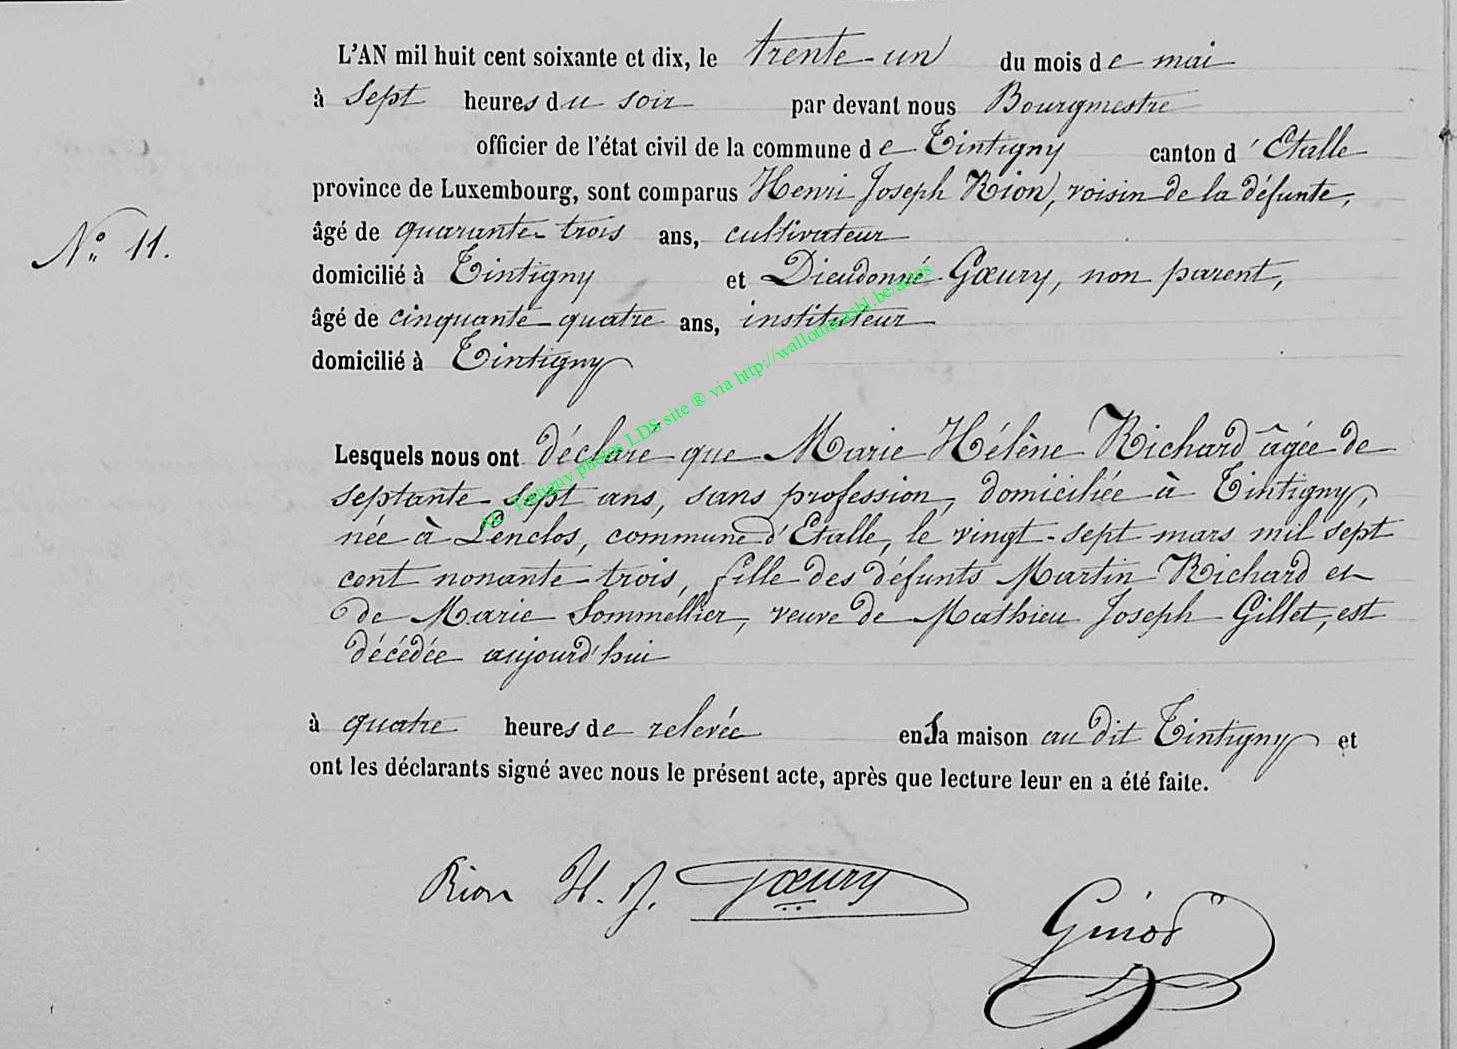 L'AN mil huit cent soixante et dix, le trente-un du mois de mai
à sept heures du soir par devant nous Bourgmestre
officier de l'état civil de la commune de Tintigny canton d'Etalle
province de Luxembourg, sont comparus Henri Joseph Rion, voisin de la défunte,
N° 11.
âgé de quarante-trois ans, cultivateur
domicilié à Tintigny et Dieudonné Gœury, non parent,
âgé de cinquante-quatre ans, instituteur
domicilié à Tintigny
Lesquels nous ont déclaré que Marie Hélène Richard âgée de
septante-sept ans, sans profession, domiciliée à Tintigny,
née à Lenclos, commune d'Etalle, le vingt-sept mars mil sept
cent nonante-trois, fille des défunts Martin Richard et
de Marie Sommellier, veuve de Mathieu Joseph Gillet, est
décédée aujourd'hui
à quatre heures de relevée en sa maison au dit Tintigny et
ont les déclarants signé avec nous le présent acte, après que lecture leur en a été faite.
Rion H. J. Gœury
Tintigny photos LDS site ® via http://wallonia-asbl.be/actes